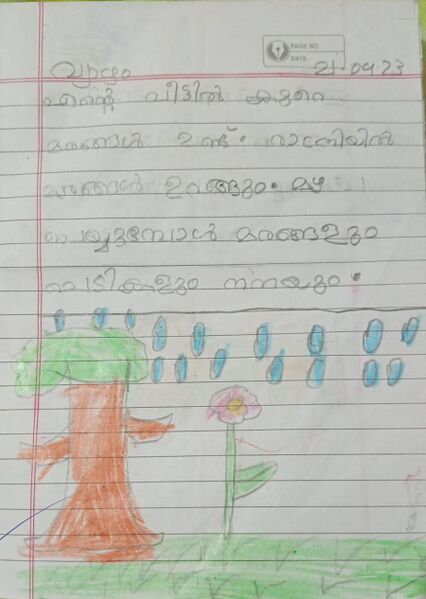 PAGE NO.
DATE
വ്യാഴം 21.09.23
എൻ്റെ വീട്ടിൽ കുറെ
മരങ്ങൾ ഉണ്ട്. രാത്രിയിൽ
മരങ്ങൾ ഉറങ്ങും. മഴ
പെയ്യുമ്പോൾ മരങ്ങളും
ചെടികളും നനയും.